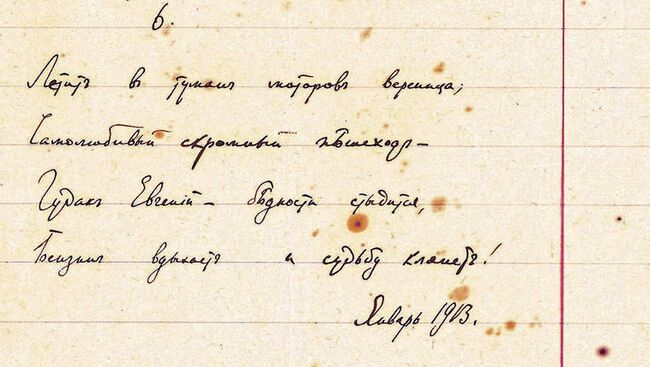 6.
Летитъ в туман моторовъ вереница;
Самолюбивый скромный пѣшеходъ —
Чудакъ Евгеній — бѣдности стыдится,
Бензинъ вдыхаетъ и судьбу клянетъ!
Январь 1913.